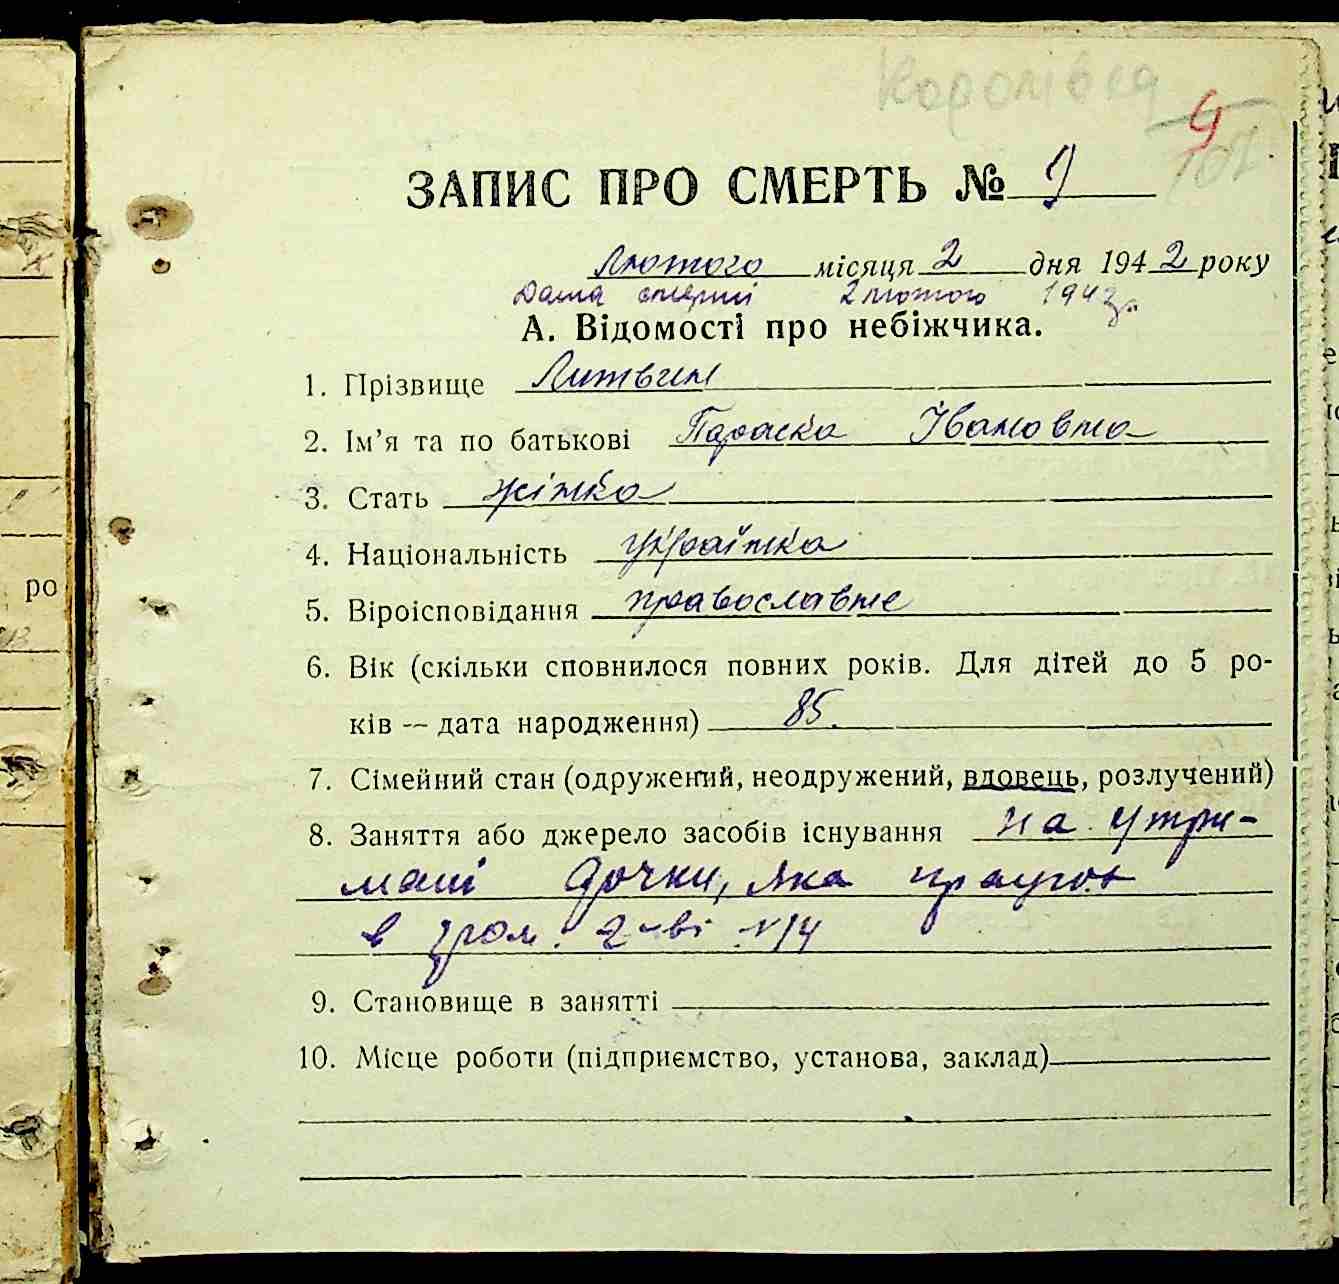 Королівка
9
101
ЗАПИС ПРО СМЕРТЬ № 9
Лютого місяця 2 дня 1942 року
Дата смерті 2 лютого 194
А. Відомості про небіжчика.
1. Прізвище Литвин
2. Ім’я та по батькові Параска Івановна
3. Стать жінка
4. Національність українка
5. Віроісповідання православне
6. Вік (скільки сповнилося повних років. Для дітей до 5 ро-
ків — дата народження) 85.
7. Сімейний стан (одружений, неодружений, вдовець, розлучений)
8. Заняття або джерело засобів існування на утри-
мані дочки, яка працює
в гром. г-ві №4
9. Становище в занятті
10. Місце роботи (підприємство, установа, заклад)
ро